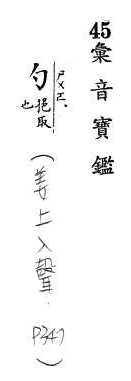 45彙音寶鑑
勺 ㄕㄨㄛˊ 挹取也
(姜上入聲. P347)